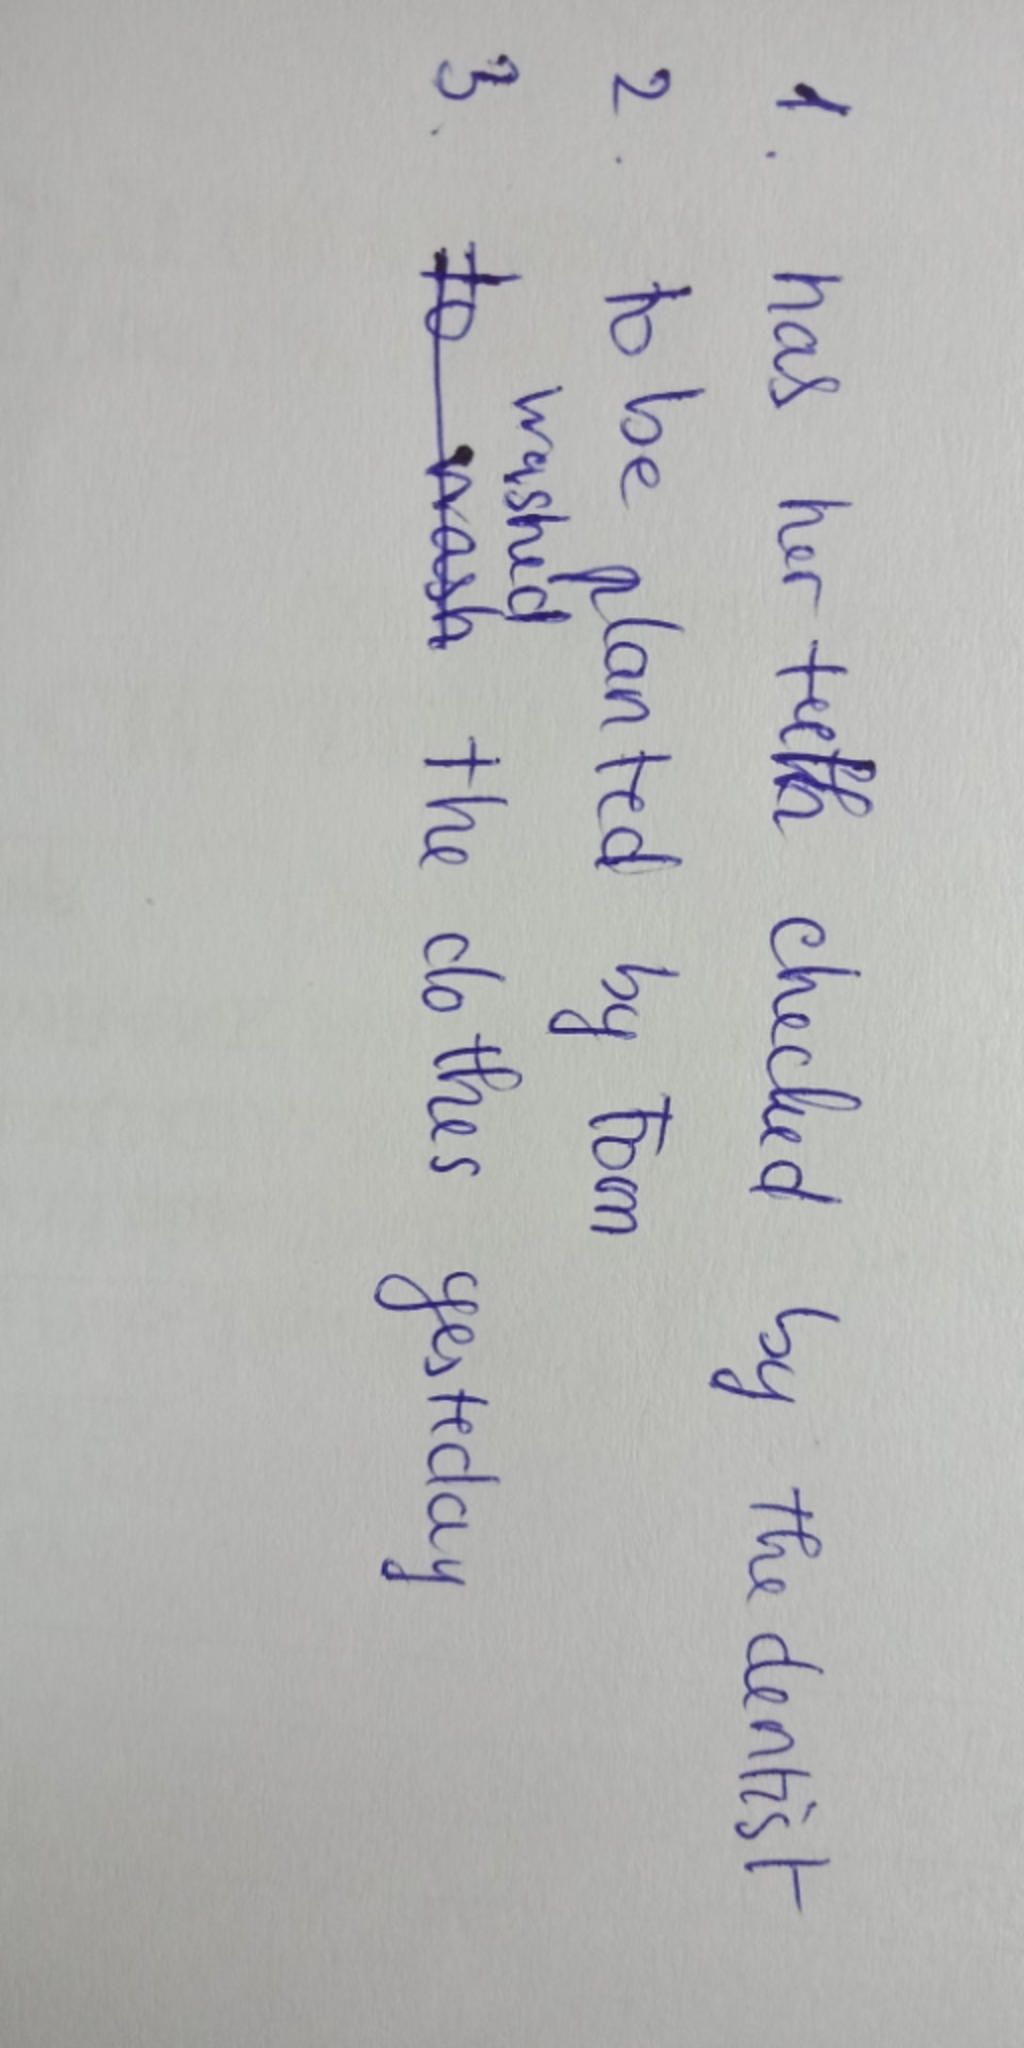 1. has her teeth checked by the dentist
2. to be planted by Tom
washed
3. to wash the clothes yesteday